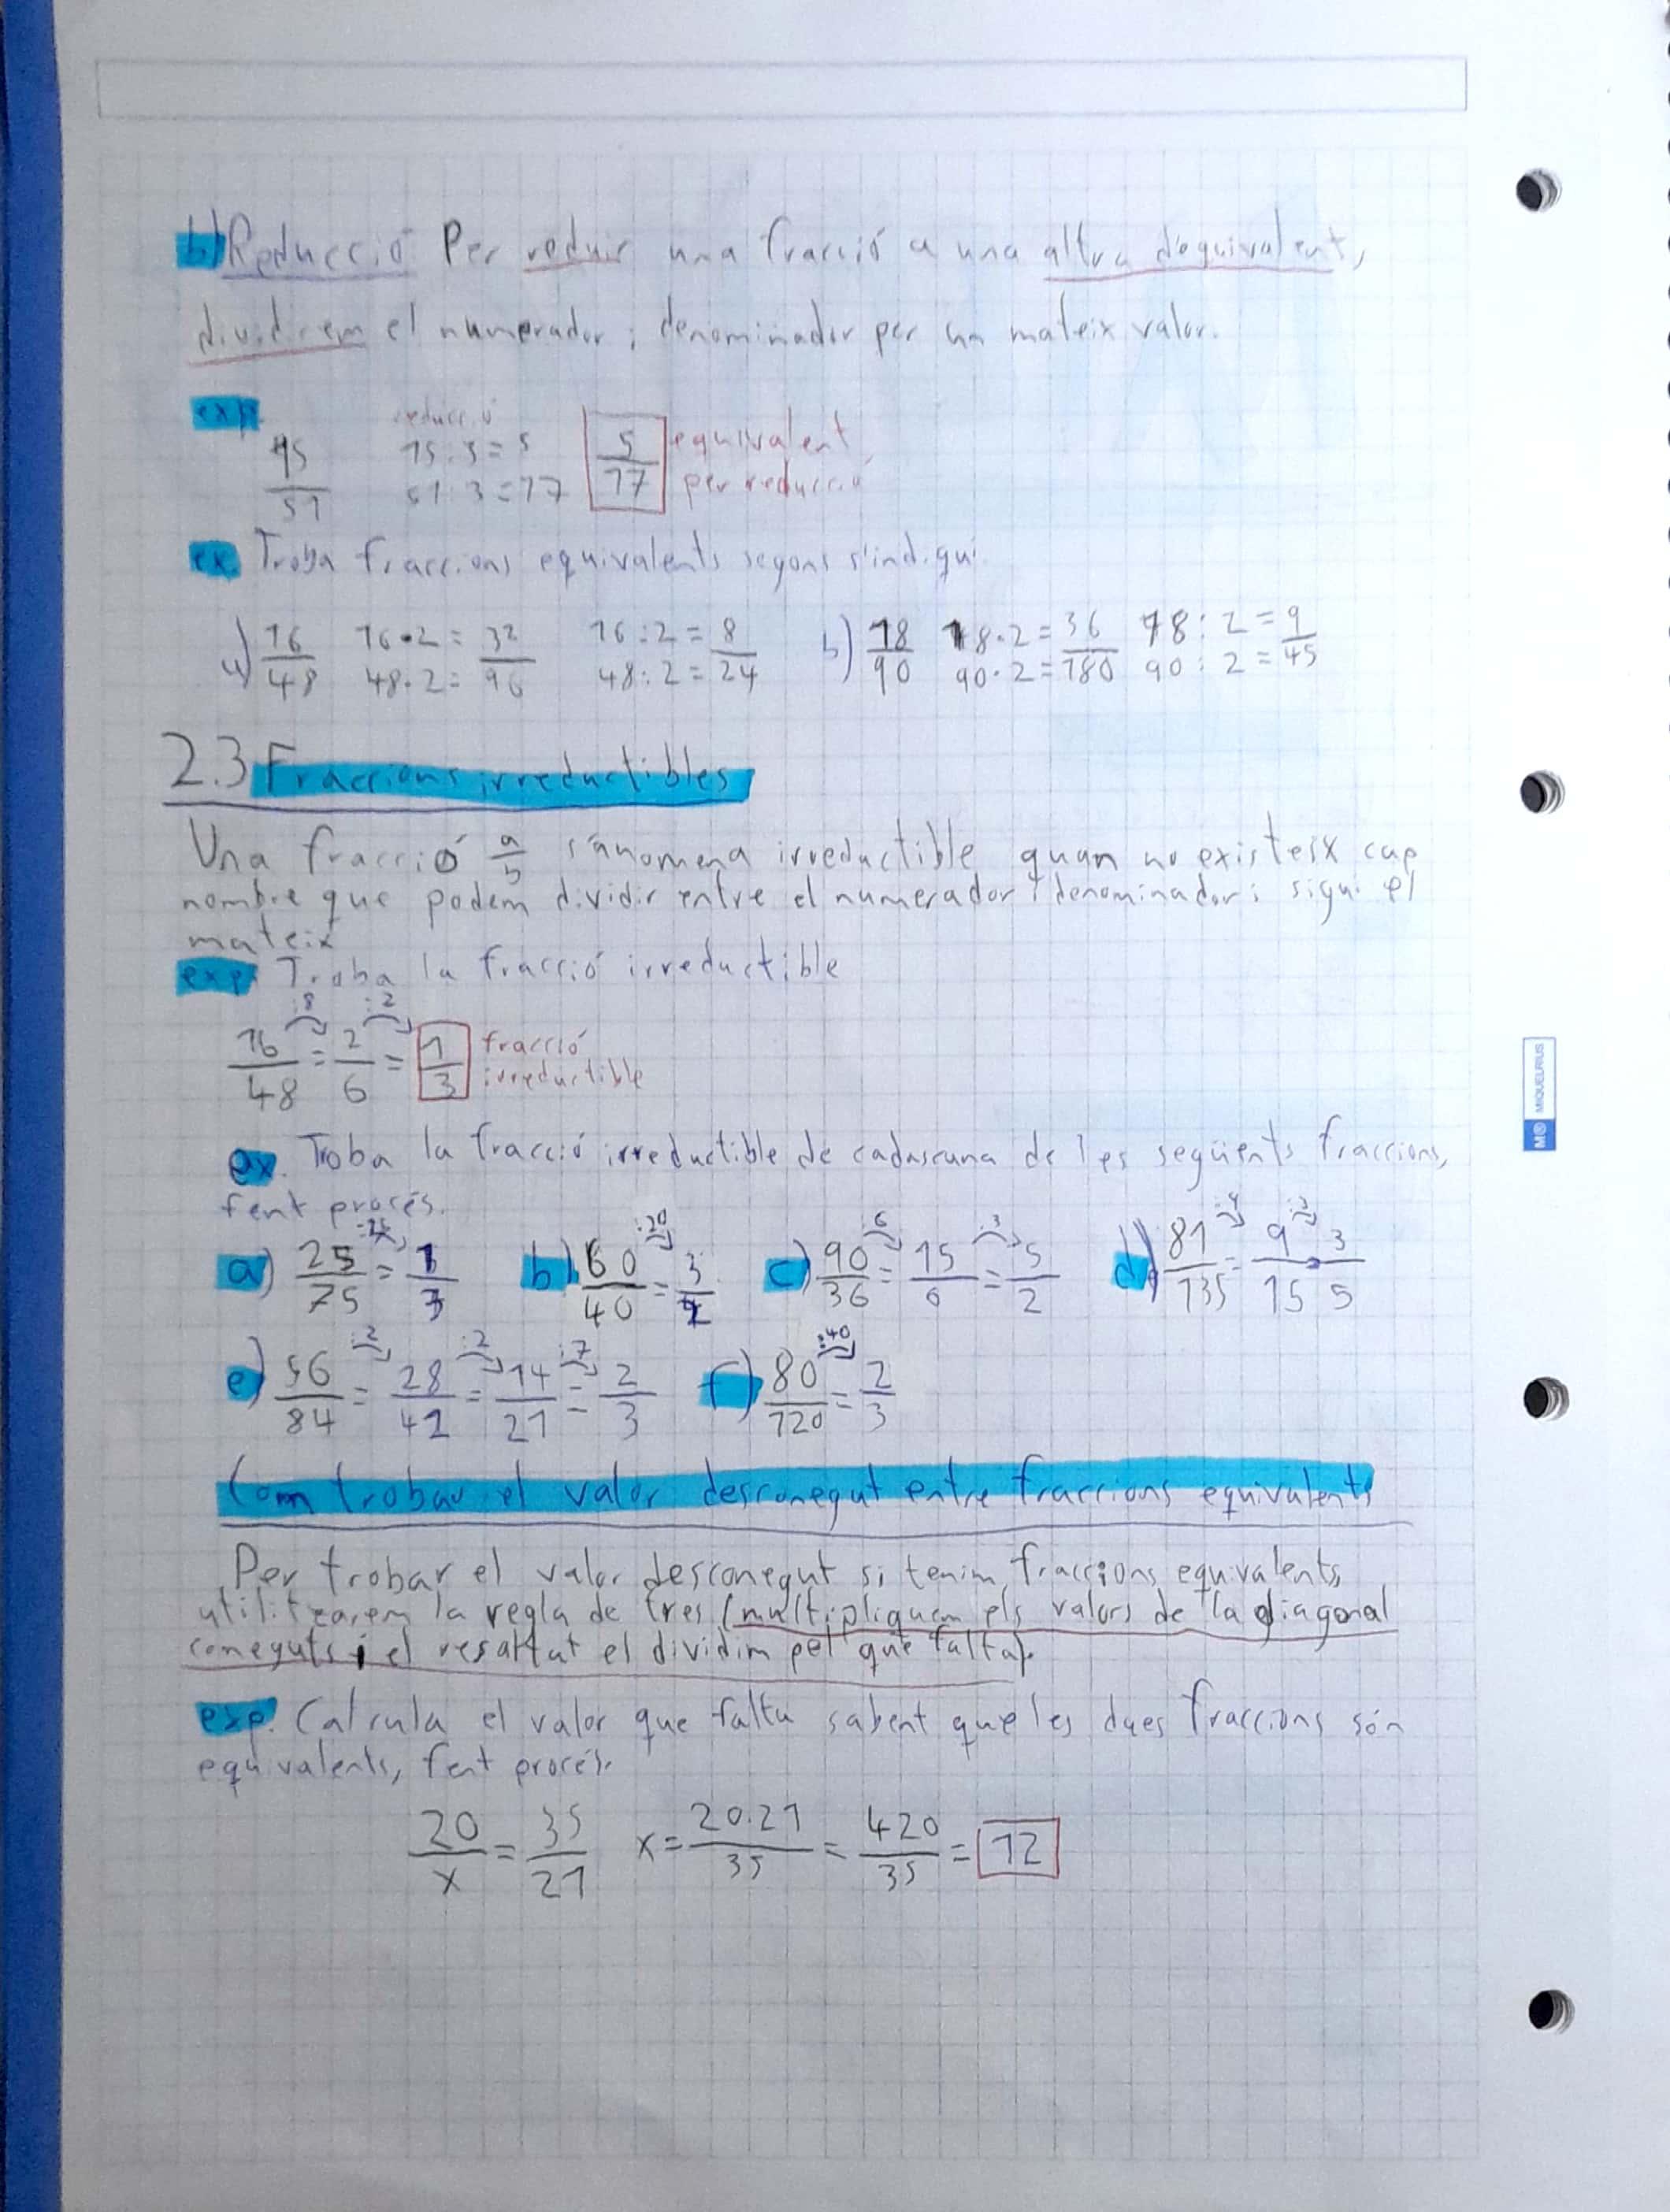 b) Reducció Per reduir una fracció a una altra d'equivalent,
dividirem el numerador i denominador per un mateix valor.
exp.
reducció
15/51 15:3=5 5/17 equivalent
51:3=17 per reducció
ex. Troba fraccions equivalents segons s'indiqui.
a) 16/48 16·2=32 16:2=8 b) 18/90 18·2=36 18:2=9
48·2=96 48:2=24 90·2=180 90:2=45
2.3 Fraccions irreductibles
Una fracció a/b s'anomena irreductible quan no existeix cap
nombre que podem dividir entre el numerador i denominador i sigui el
mateix
exp. Troba la fracció irreductible
:8 :2
16/48 = 2/6 = 1/3 fracció
irreductible
ex. Troba la fracció irreductible de cadascuna de les següents fraccions,
fent procés.
:25 :20 :6 :3 :3
a) 25/75 = 1/3 b) 60/40 = 3/2 c) 90/36 = 15/6 = 5/2 d) 81/135 = 9/15 = 3/5
:2 :2 :7 :40
e) 56/84 = 28/42 = 14/21 = 2/3 f) 80/120 = 2/3
Com trobar el valor desconegut entre fraccions equivalents
Per trobar el valor desconegut si tenim fraccions equivalents,
utilitzarem la regla de tres (multipliquem els valors de la diagonal
coneguts i el resultat el dividim pel que falta).
exp. Calcula el valor que falta sabent que les dues fraccions són
equivalents, fent procés.
20/x = 35/21 x = 20·21/35 = 420/35 = 12
MIQUELRIUS